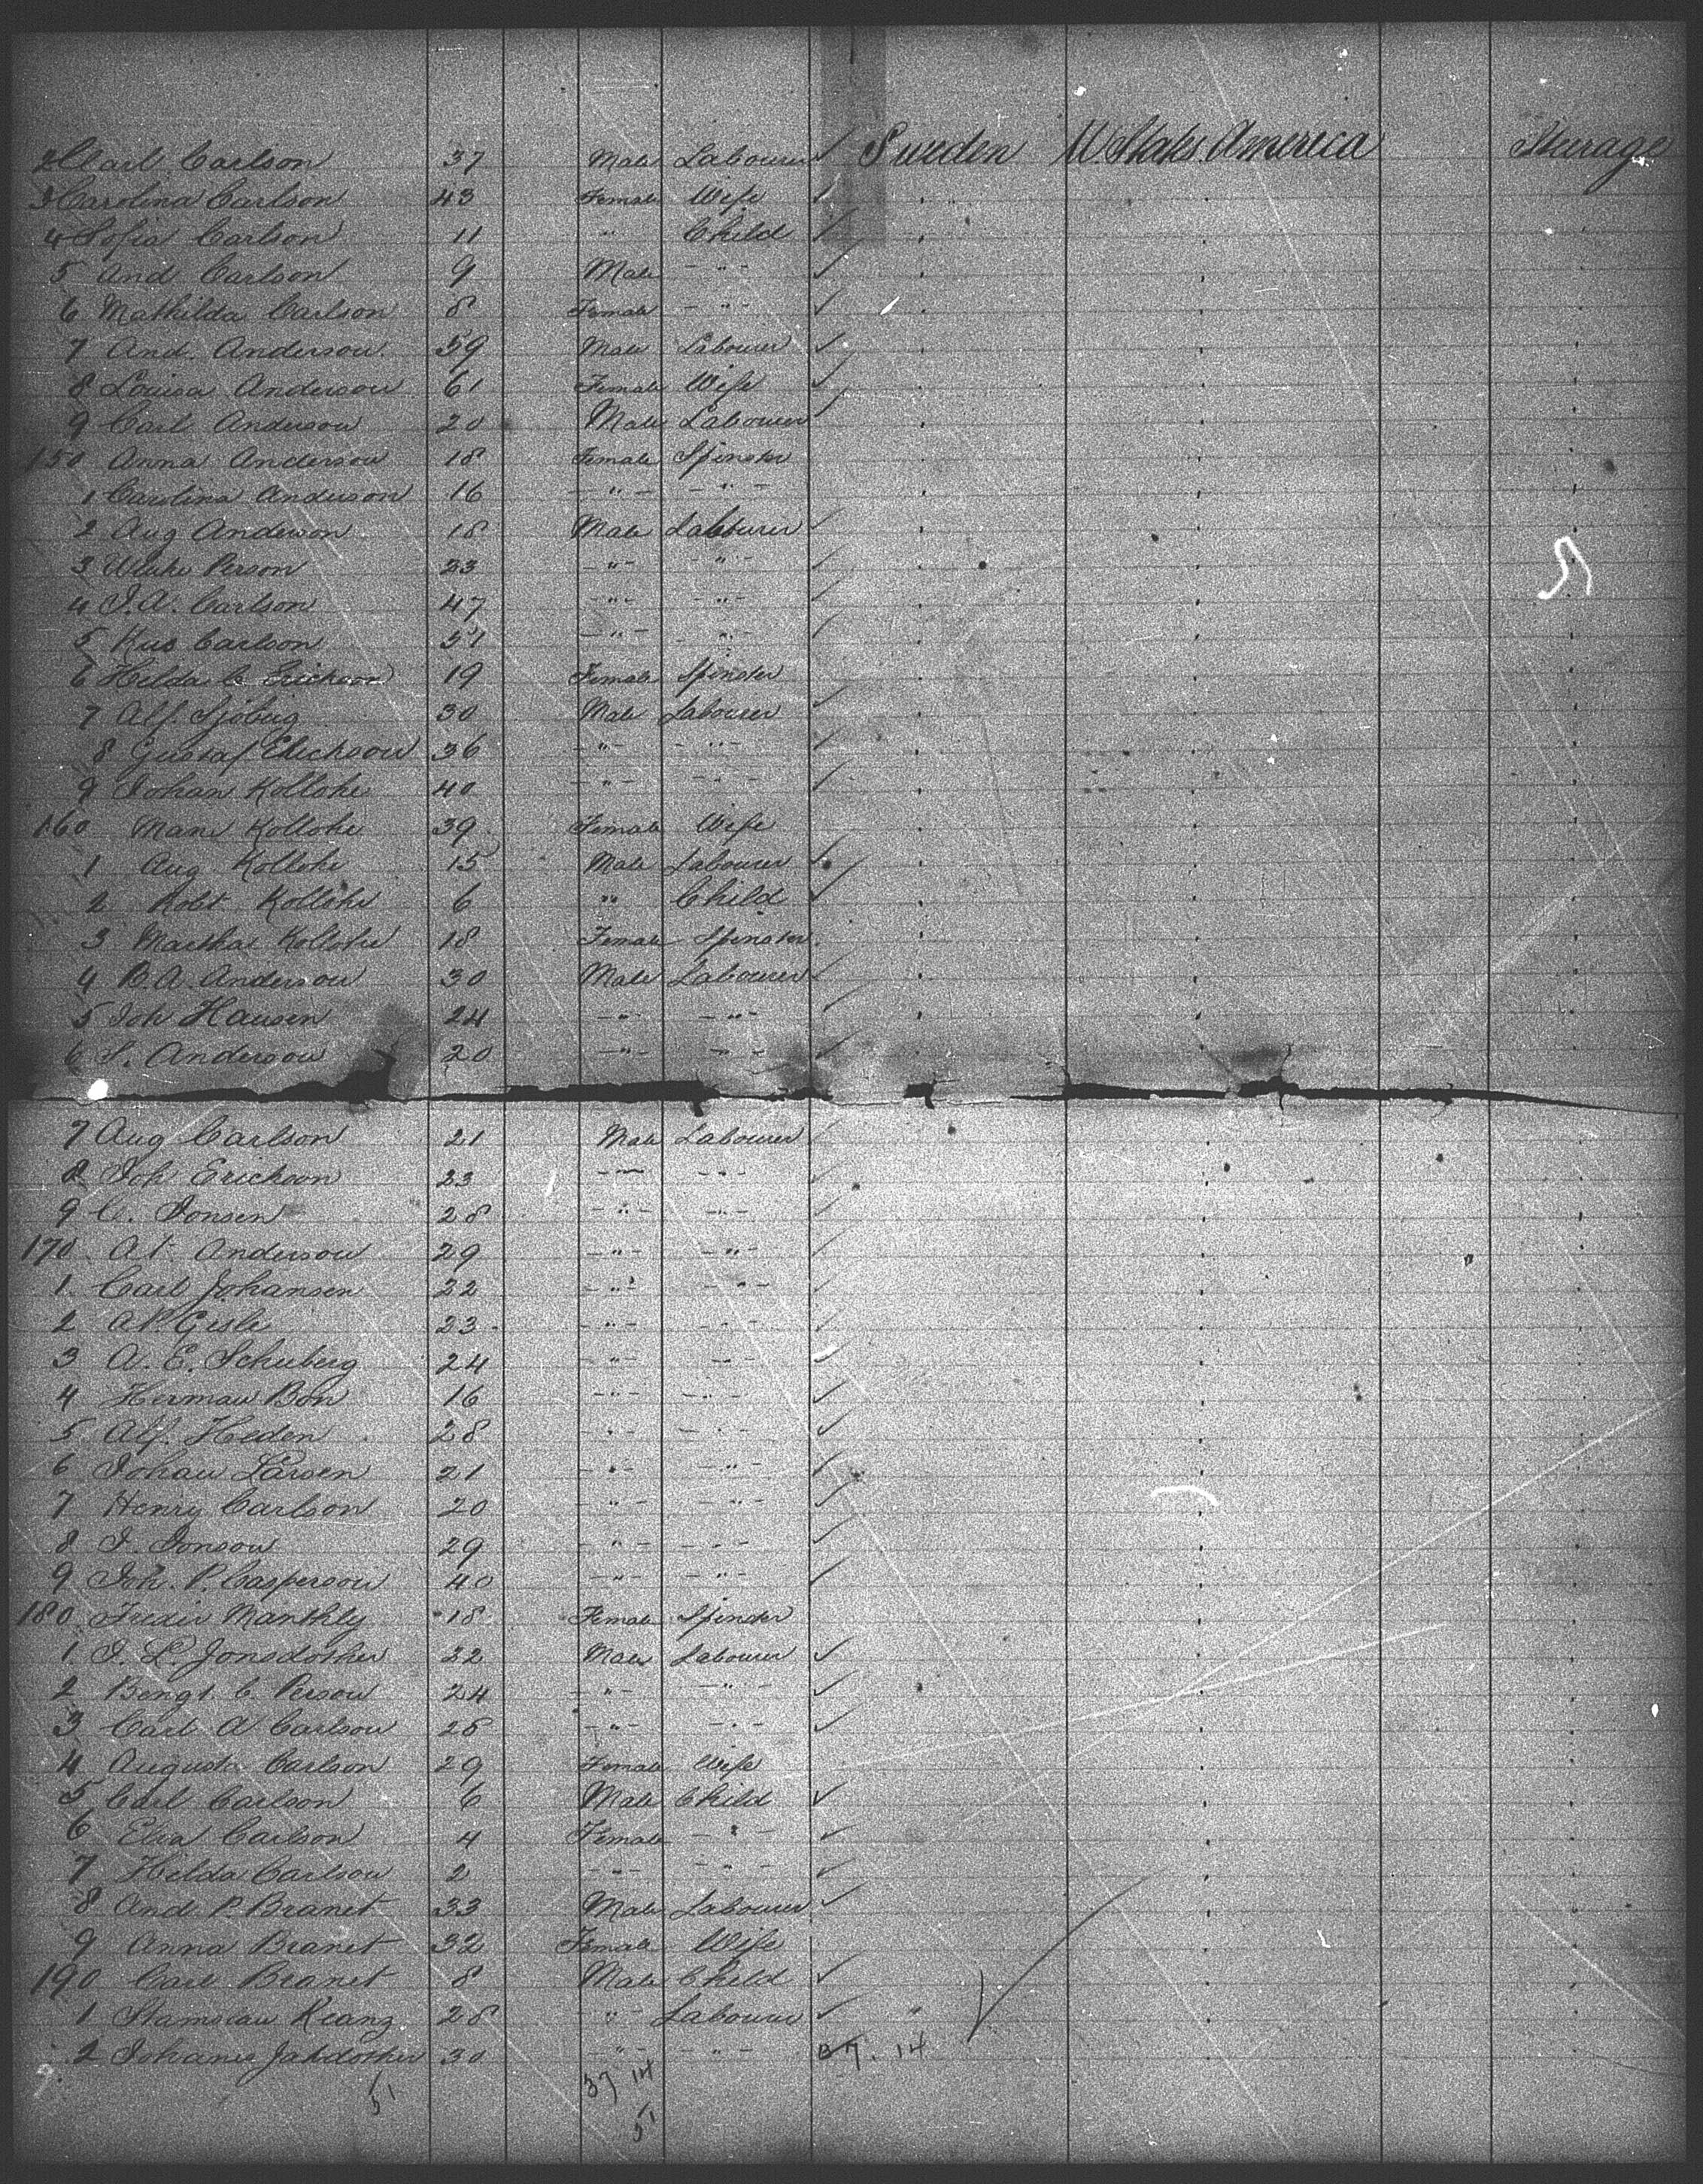 2 Carl Carlson 37 Male Labourer ✓ Sweden U. States America Steerage
3 Carolina Carlson 43 Female Wife ✓ "
4 Sofia Carlson 11 " Child ✓
5 And Carlson 9 Male - " - ✓
6 Mathilda Carlson 8 Female - " - ✓
7 And. Anderson 59 Male Labourer ✓
8 Louisa Anderson 61 Female Wife ✓
9 Carl Anderson 20 Male Labourer ✓
150 Anna Anderson 18 Female Spinster
1 Carolina Anderson 16 - " - - " -
2 Aug Anderson 18 Male Labourer ✓
3 Person 23 - " - " - ✓
4 J.A. Carlson 47 - " - - " - ✓
5 Carlson 51 - " - - " - ✓
6 Hilda C Erickson 19 Female Spinster
7 Alf. Sjöberg 30 Male Labourer ✓
8 Gustaf Erickson 36 - " - - " - ✓
9 Johan Kollohe 40 - " - - " - ✓
160 Kollohe 39 Female Wife
1 Aug Kollohe 15 Male Labourer ✓
2 Robt Kollohe 6 " Child ✓
3 Martha Kollohe 18 Female Spinster
4 B.A. Anderson 30 Male Labourer ✓
5 Joh Hansen 24 - " - - " - ✓
6 S. Anderson 20 - " - - " - ✓
7 Aug Carlson 21 Male Labourer ✓
8 Joh Erickson 23 - " - - " - ✓
9 C. Jonsen 28 - " - - " - ✓
170 A. Anderson 29 - " - - " - ✓
1 Carl Johansen 22 - " - - " - ✓
2 A.P. Gisle 23 - " - - " - ✓
3 A. E. Schuberg 24 - " - - " - ✓
4 Herman Bon 16 - " - - " - ✓
5 Alf. Heden 28 - " - - " - ✓
6 Johan Larsen 21 - " - - " - ✓
7 Henry Carlson 20 - " - - " - ✓
8 J. Jonson 29 - " - - " - ✓
9 Joh. P. Casperson 40 - " - - " - ✓
180 Manthly 18 Female Spinster
1 J. L. Jonsdother 22 Male Labourer ✓
2 Bengt C. Person 24 - " - - " - ✓
3 Carl A Carlson 28 - " - - " - ✓
4 Augusta Carlson 29 Female Wife
5 Carl Carlson 6 Male Child ✓
6 Elva Carlson 4 Female - " - ✓
7 Hilda Carlson 2 - " - - " - ✓
8 And. P. Branet 33 Male Labourer ✓
9 Anna Branet 32 Female Wife
190 Carl Branet 8 Male Child ✓
1 Stanislau Kranz 28 - " - Labourer ✓ "
2 Jahdother 30 - " - - " - 37. 14
51 37 14
51